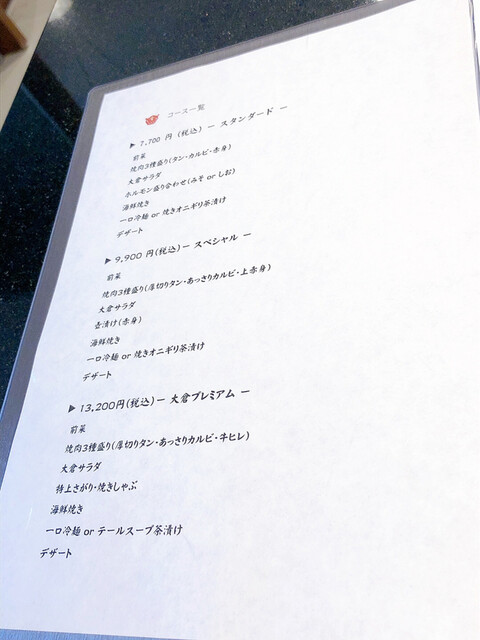 コース一覧
▶ 7,700 円 (税込) ー スタンダード ー
前菜
焼肉3種盛り(タン・カルビ・赤身)
大倉サラダ
ホルモン盛り合わせ(みそ or しお)
海鮮焼き
一口冷麺 or 焼きオニギリ茶漬け
デザート
▶ 9,900 円(税込) ー スペシャル ー
前菜
焼肉3種盛り(厚切りタン・あっさりカルビ・上赤身)
大倉サラダ
壺漬け(赤身)
海鮮焼き
一口冷麺 or 焼きオニギリ茶漬け
デザート
▶ 13,200円(税込) ー 大倉プレミアム ー
前菜
焼肉3種盛り(厚切りタン・あっさりカルビ・ネヒレ)
大倉サラダ
特上さがり・焼きしゃぶ
海鮮焼き
一口冷麺 or テールスープ茶漬け
デザート